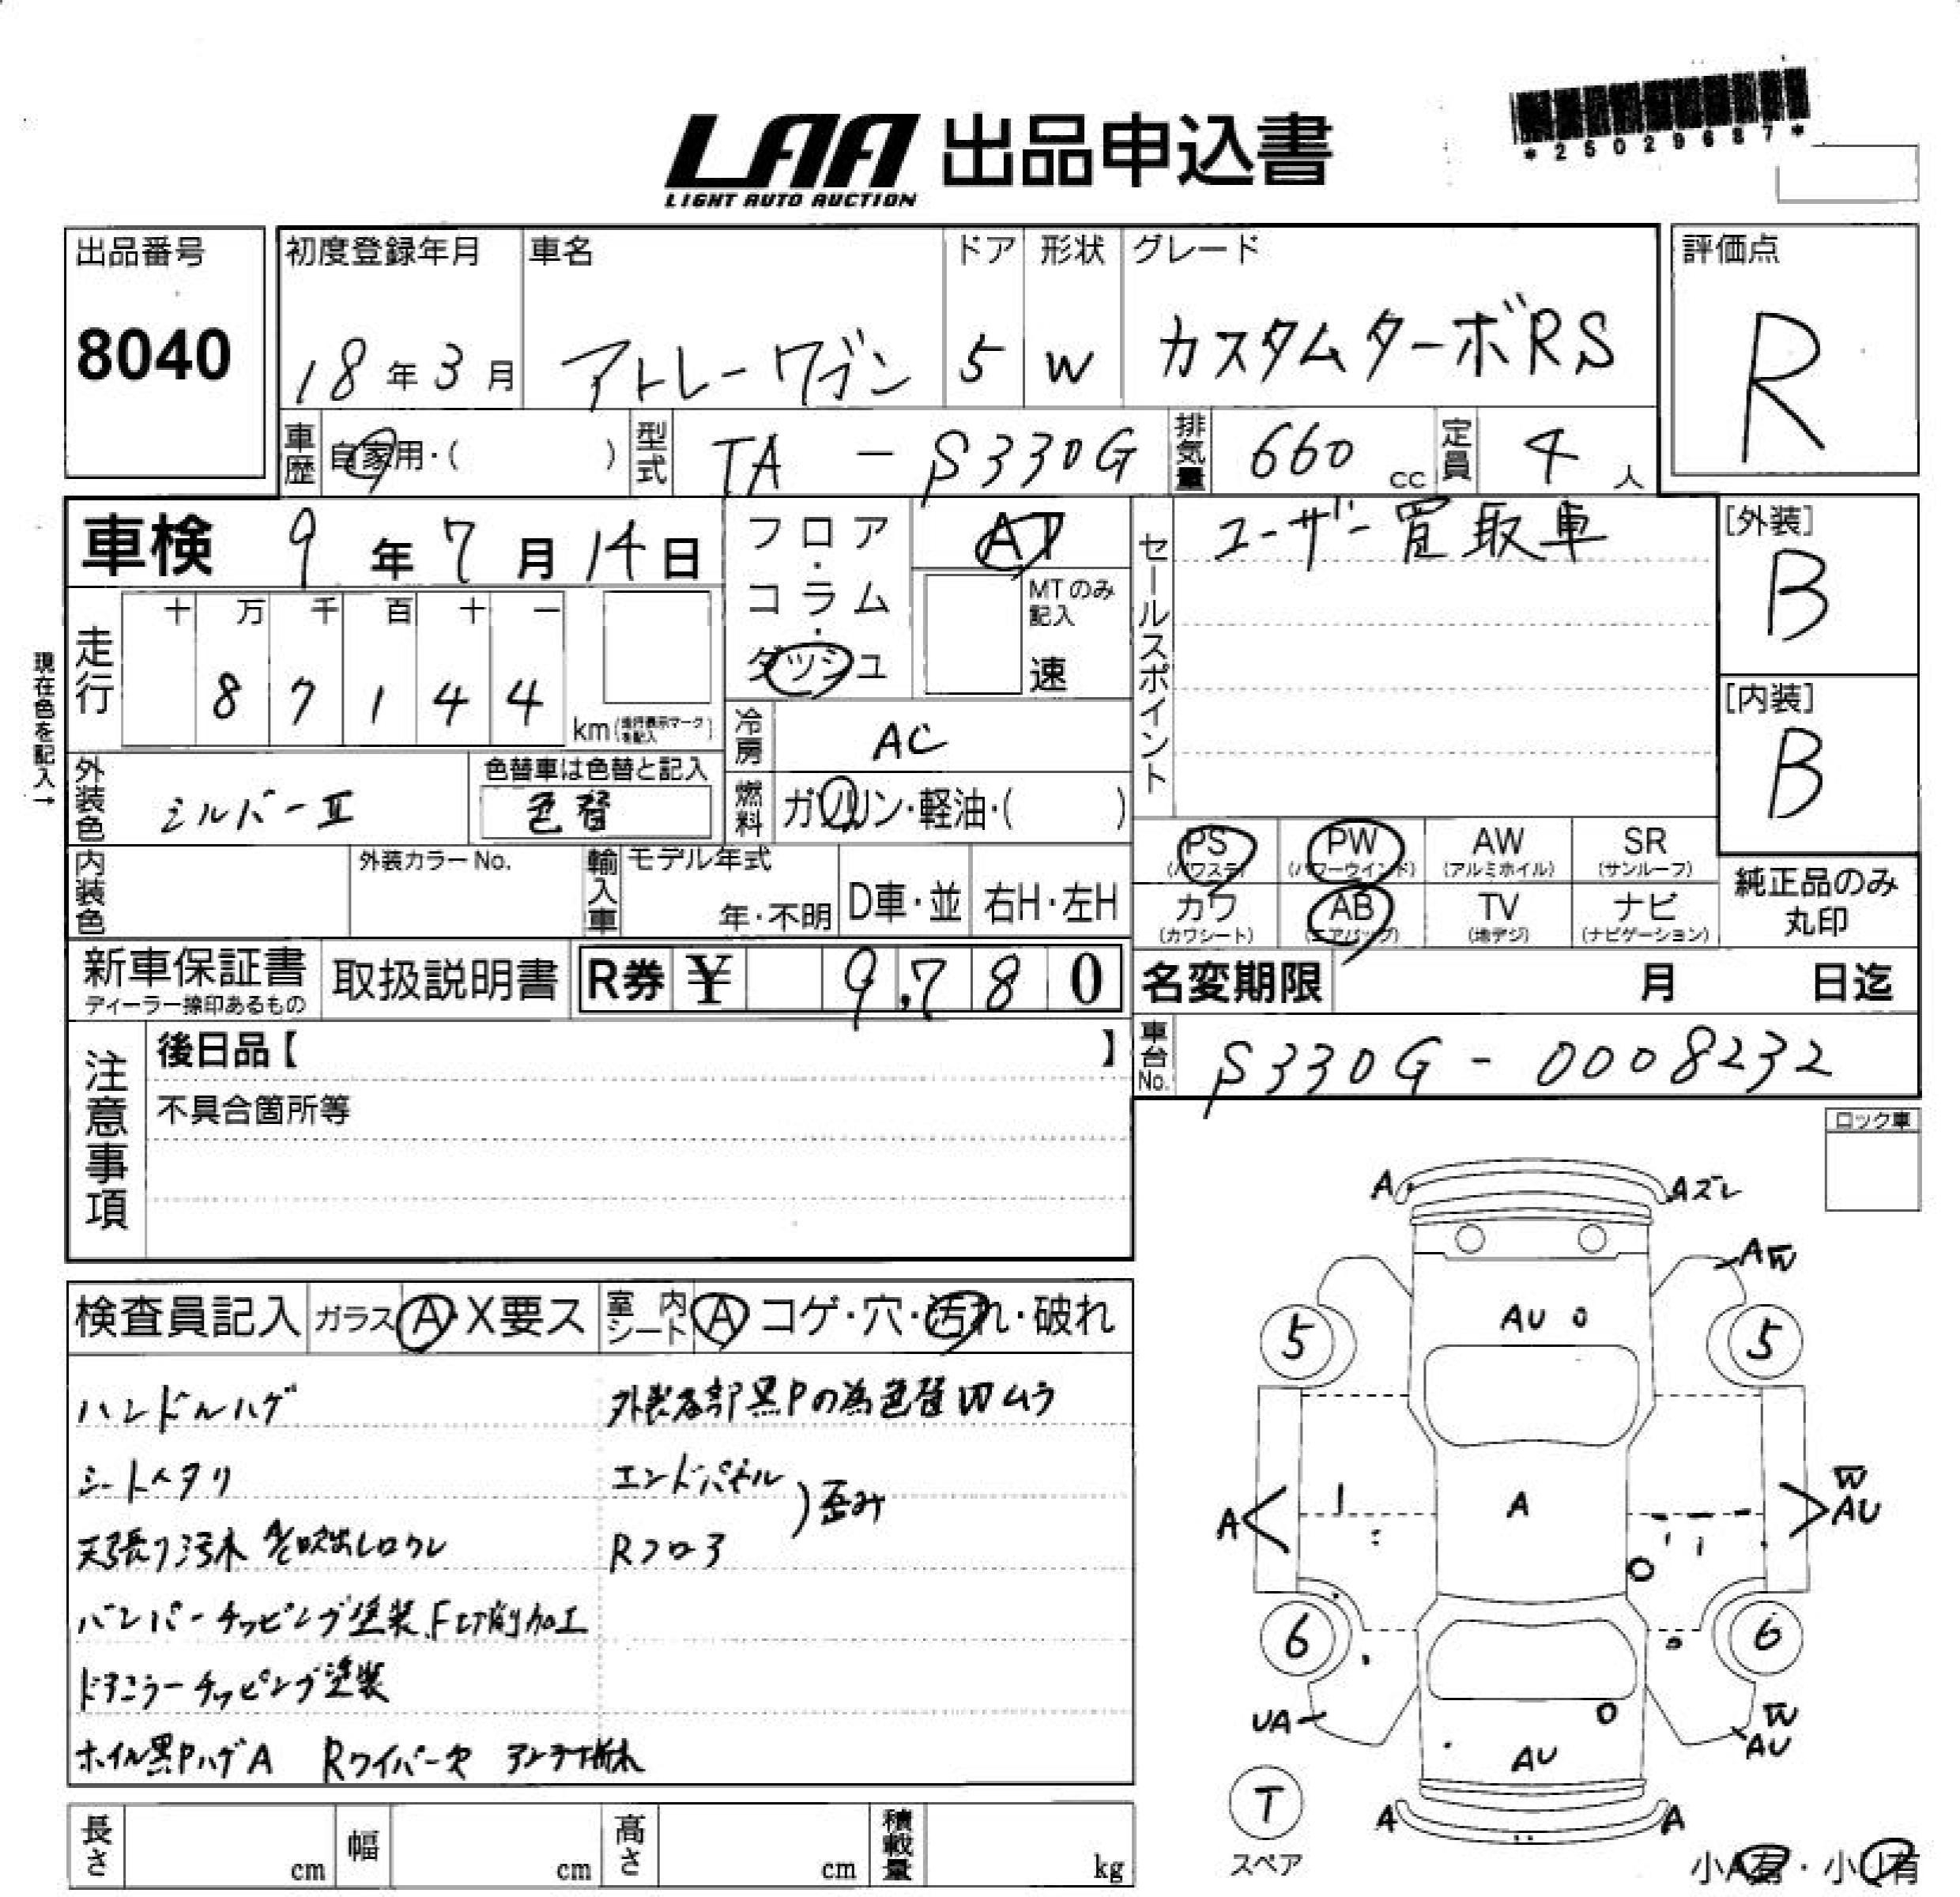 LAA 出品申込書
LIGHT AUTO AUCTION
*25029687*
出品番号
8040
初度登録年月
18年3月
車名
アトレーワゴン
ドア
5
形状
W
グレード
カスタムターボRS
評価点
R
車歴 自家用・( )
型式 TA - S330G
排気量 660 cc
定員 4 人
車検 9年7月14日
フロア・コラム・ダッシュ
AT
MTのみ記入
速
セールスポイント
ユーザー買取車
[外装]
B
[内装]
B
現在色を記入→
走行
十 万 千 百 十 一
8 7 1 4 4
km (走行表示マークを記入)
冷房 AC
燃料 ガソリン・軽油・( )
外装色 シルバーⅡ
色替車は色替と記入
色替
内装色
外装カラーNo.
輸入車
モデル年式
年・不明
D車・並
右H・左H
PS (パワステ)
PW (パワーウインド)
AW (アルミホイル)
SR (サンルーフ)
カワ (カワシート)
AB (エアバッグ)
TV (地デジ)
ナビ (ナビゲーション)
純正品のみ
丸印
新車保証書
ディーラー捺印あるもの
取扱説明書
R券 ¥ 9,780
名変期限 月 日迄
車台No. S330G - 0008232
注意事項
後日品【 】
不具合箇所等
ロック車
検査員記入
ガラス A・X要ス
室内シート A コゲ・穴・汚れ・破れ
ハンドルハゲ
外装各部黒Pの為色替 凹ムラ
シートヘタリ
エンドパネル
Rフロア
)歪み
天張り汚れ A/C吹出し口ワレ
バンパーチッピング塗装、F切削加工
ドアミラーチッピング塗装
ホイル黒PハゲA Rワイパー欠 アンテナ折れ
A
Aズレ
AW
AU
5
5
W
AU
A
A
6
6
UA
W
AU
AU
T
スペア
A
A
小A有・小U有
長さ cm
幅 cm
高さ cm
積載量 kg